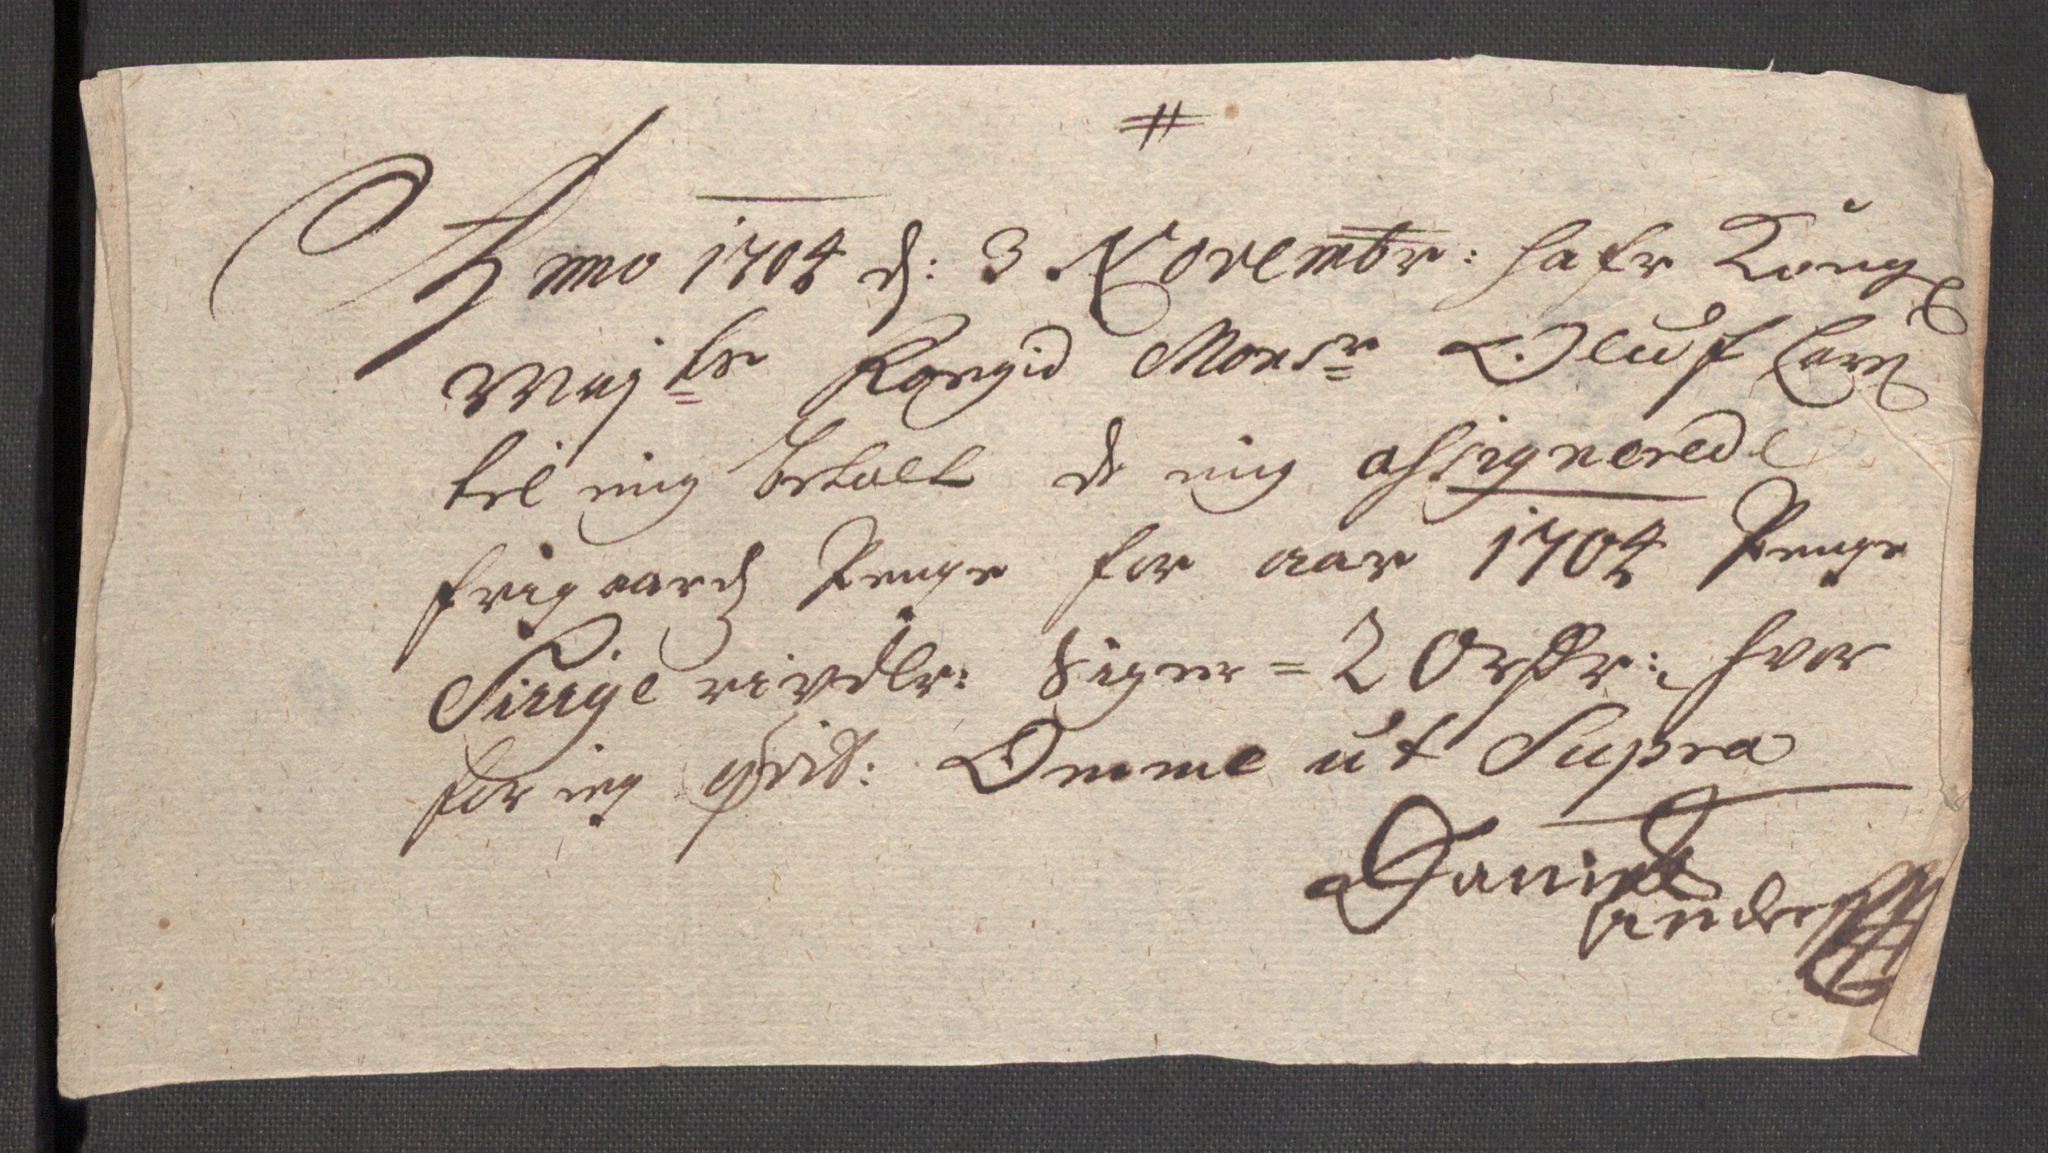 #
Anno 1704 d: 3 Novembr: hafr Kong
Maj tz Fougid Monsr Oluf
til mig betalt de mig assignerede
frigaards Penge for aar 1704 Penge
Tiuge rixdlr: siger = 20 rdr: hvor
for ieg qvit: Omme ut Supra
Daniel
Anders